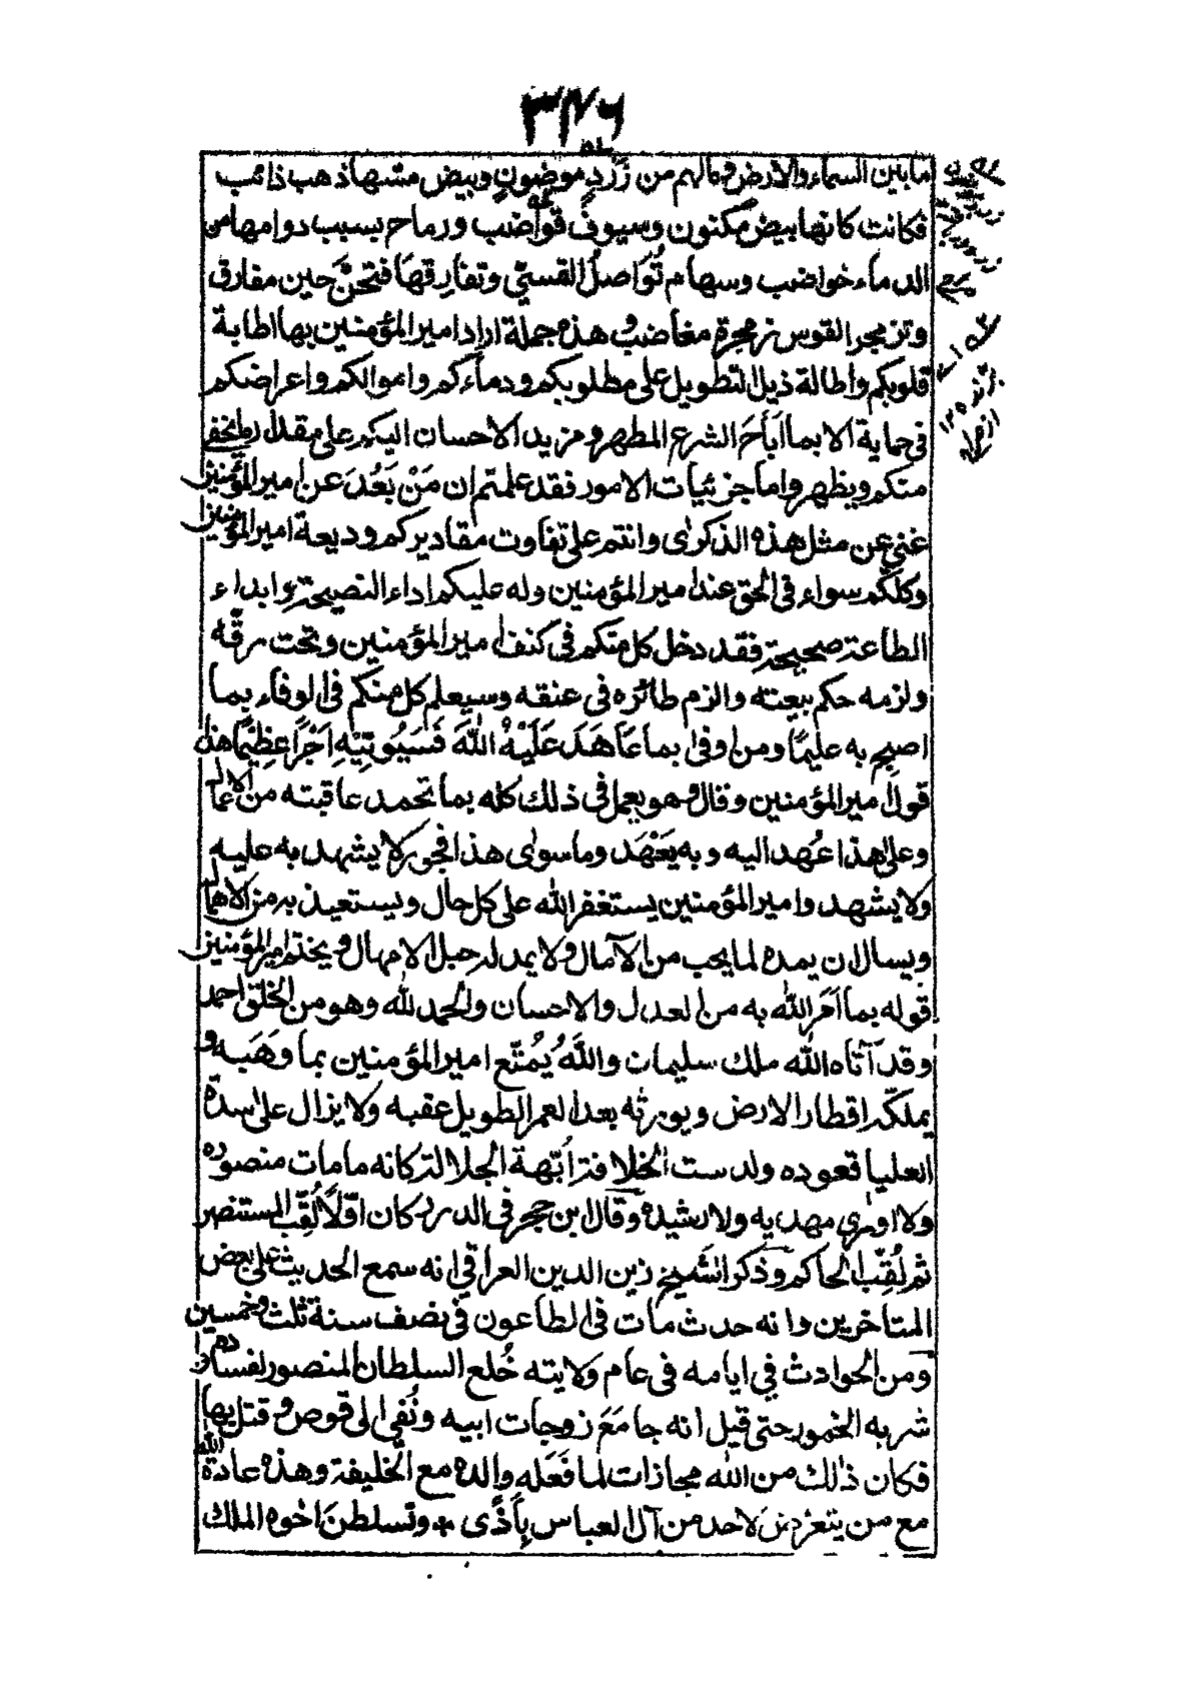 ٣٤٦
ما بين السماء والارض وما لهم من زَرَدٍ موضون وبيض مسّها ذهب ذائب
فكانت كانها بيض مكنون وسيوف قواضب ورماح بسبب دوامها من
الدماء خواضب وسهام تُوَاصلُ القسىّ وتفارقها فتحنّ حين مفارق
وتزمجر القوس زمجرة مغاضب و هذه جملة اراد امير المؤمنين بها اطابة
قلوبكم واطالة ذيل التطويل على مطلوبكم ودماءكم واموالكم واعراضكم
فى حماية الا بما اَبَاحَ الشرع المطهر ومزيد الاحسان اليكم على مقدار ما يخفى
منكم ويظهر واما جزئيات الامور فقد علمتم ان مَنْ بَعُدَ عن امير المؤمنين
غنى عن مثل هذه الذكرى وانتم على تفاوت مقاديركم وديعة امير المؤمنين
وكلكم سواء فى الحق عند امير المؤمنين وله عليكم اداء النصيحة وابداء
الطاعة صحيحة فقد دخل كل منكم فى كنف امير المؤمنين وتحت رقّه
ولزمه حكم بيعته والزم طائره فى عنقه وسيعلم كل منكم فى الوفاء بما
اصبح به عليمًا ومن اوفى بما عَاهَدَ عَلَيْهُ اللّٰهَ فَسَيُوتِيْهِ اَجْرًا عَظِيْمًا هذا
قول امير المؤمنين وقال وهو يعمل فى ذلك كله بما تحمد عاقبته من الاعمال
وعلى هذا عُهد اليه وبه يَعْهَد وما سوى هذا فجور لا يشهد به عليه
ولا يشهد وامير المؤمنين يستغفر الله على كل حال ويستعيذ به من الاهمال
ويسال ان يمده لما يحب من الآمال ولا يمد له حبل الامهال ويختم امير المؤمنين
قوله بما اَمَرَ اللّٰه به من العدل والاحسان والحمد للّٰه وهو من الخلق احمد
وقد آتاه اللّٰه ملك سليمان واللّٰهُ يُمْتّع امير المؤمنين بما وَهَبَه و
يملكه اقطار الارض ويورثه بعد العمر الطويل عقبه ولا يزال على سدّة
العليا قعوده ولدست الخلافة اُبّهة الجلالة كانه ما مات منصوره
ولا اودى مهديه ولا رشيده وقال ابن حجر فى الدرر كان اوّلاً لُقِّب المستنصر
ثم لُقِّب الحاكم وذكر الشيخ زين الدين العراقى انه سمع الحديث على بعض
المتاخرين وانه حدث مات فى الطاعون فى نصف سنة ثلث وخمسين
ومن الحوادث فى ايامه فى عام ولايته خُلع السلطان المنصور لفساده و
شربه الخمور حتى قيل انه جامَعَ زوجات ابيه ونُفِى الى قوص و قتل بها
فكان ذٰلك من اللّٰه مجازات لما فَعَله والده مع الخليفة وهذه عادة اللّٰه
مع من يتعرّض لاحد من آل العباس بِاَذًى * وتسلطن اخوه الملك